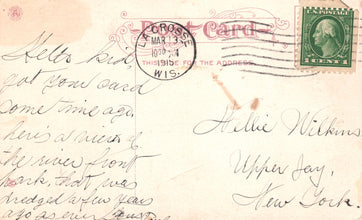 Post Card
LA CROSSE
MAR 3
1915
WIS.
THIS SIDE FOR THE ADDRESS
U.S. POSTAGE
1 CENT 1
Hello kid,
got your card
some time ago,
here's a view of
the river front
park, that was
dredged a few years
ago as ever
Wilkins
Upper Jay,
New York.